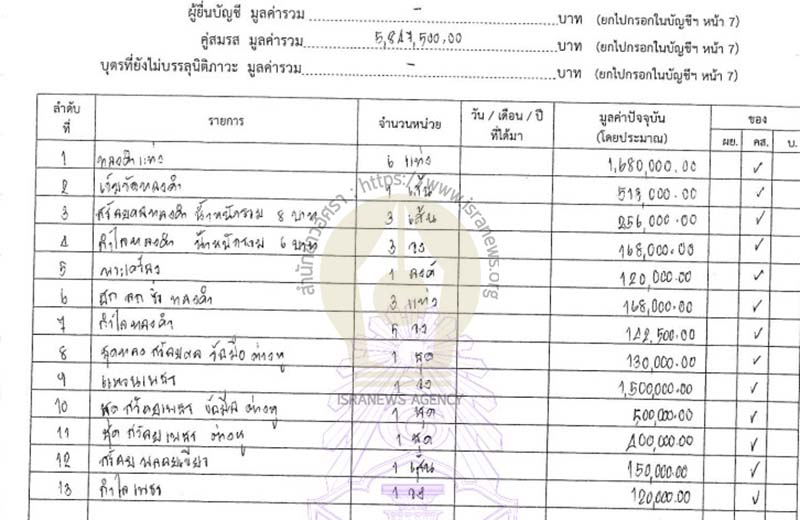 ผู้ยื่นบัญชี มูลค่ารวม - บาท (ยกไปกรอกในบัญชีฯ หน้า 7)
คู่สมรส มูลค่ารวม 5,847,500.00 บาท (ยกไปกรอกในบัญชีฯ หน้า 7)
บุตรที่ยังไม่บรรลุนิติภาวะ มูลค่ารวม - บาท (ยกไปกรอกในบัญชีฯ หน้า 7)
ลำดับที่ รายการ จำนวนหน่วย วัน / เดือน / ปี ที่ได้มา มูลค่าปัจจุบัน (โดยประมาณ) ของ ผย. คส. บ.
1 ทองคำแท่ง 6 แท่ง 1,680,000.00 ✓
2 เข็มขัดทองคำ 1 เส้น 513,000.00 ✓
3 สร้อยคอทองคำ น้ำหนักรวม 8 บาท 3 เส้น 256,000.00 ✓
4 กำไลทองคำ น้ำหนักรวม 6 บาท 3 วง 168,000.00 ✓
5 1 องค์ 120,000.00 ✓
6 ทองคำ 3 แท่ง 168,000.00 ✓
7 กำไลทองคำ 5 วง 142,500.00 ✓
8 ชุดทอง สร้อยคอ ข้อมือ ต่างหู 1 ชุด 130,000.00 ✓
9 แหวนเพชร 1 วง 1,500,000.00 ✓
10 ชุด สร้อยเพชร ข้อมือ ต่างหู 1 ชุด 500,000.00 ✓
11 ชุด สร้อยเพชร ต่างหู 1 ชุด 400,000.00 ✓
12 สร้อยพลอยเขียว 1 เส้น 150,000.00 ✓
13 กำไลเพชร 1 วง 120,000.00 ✓
สำนักข่าวอิศรา : https://www.isranews.org
ISRANEWS AGENCY